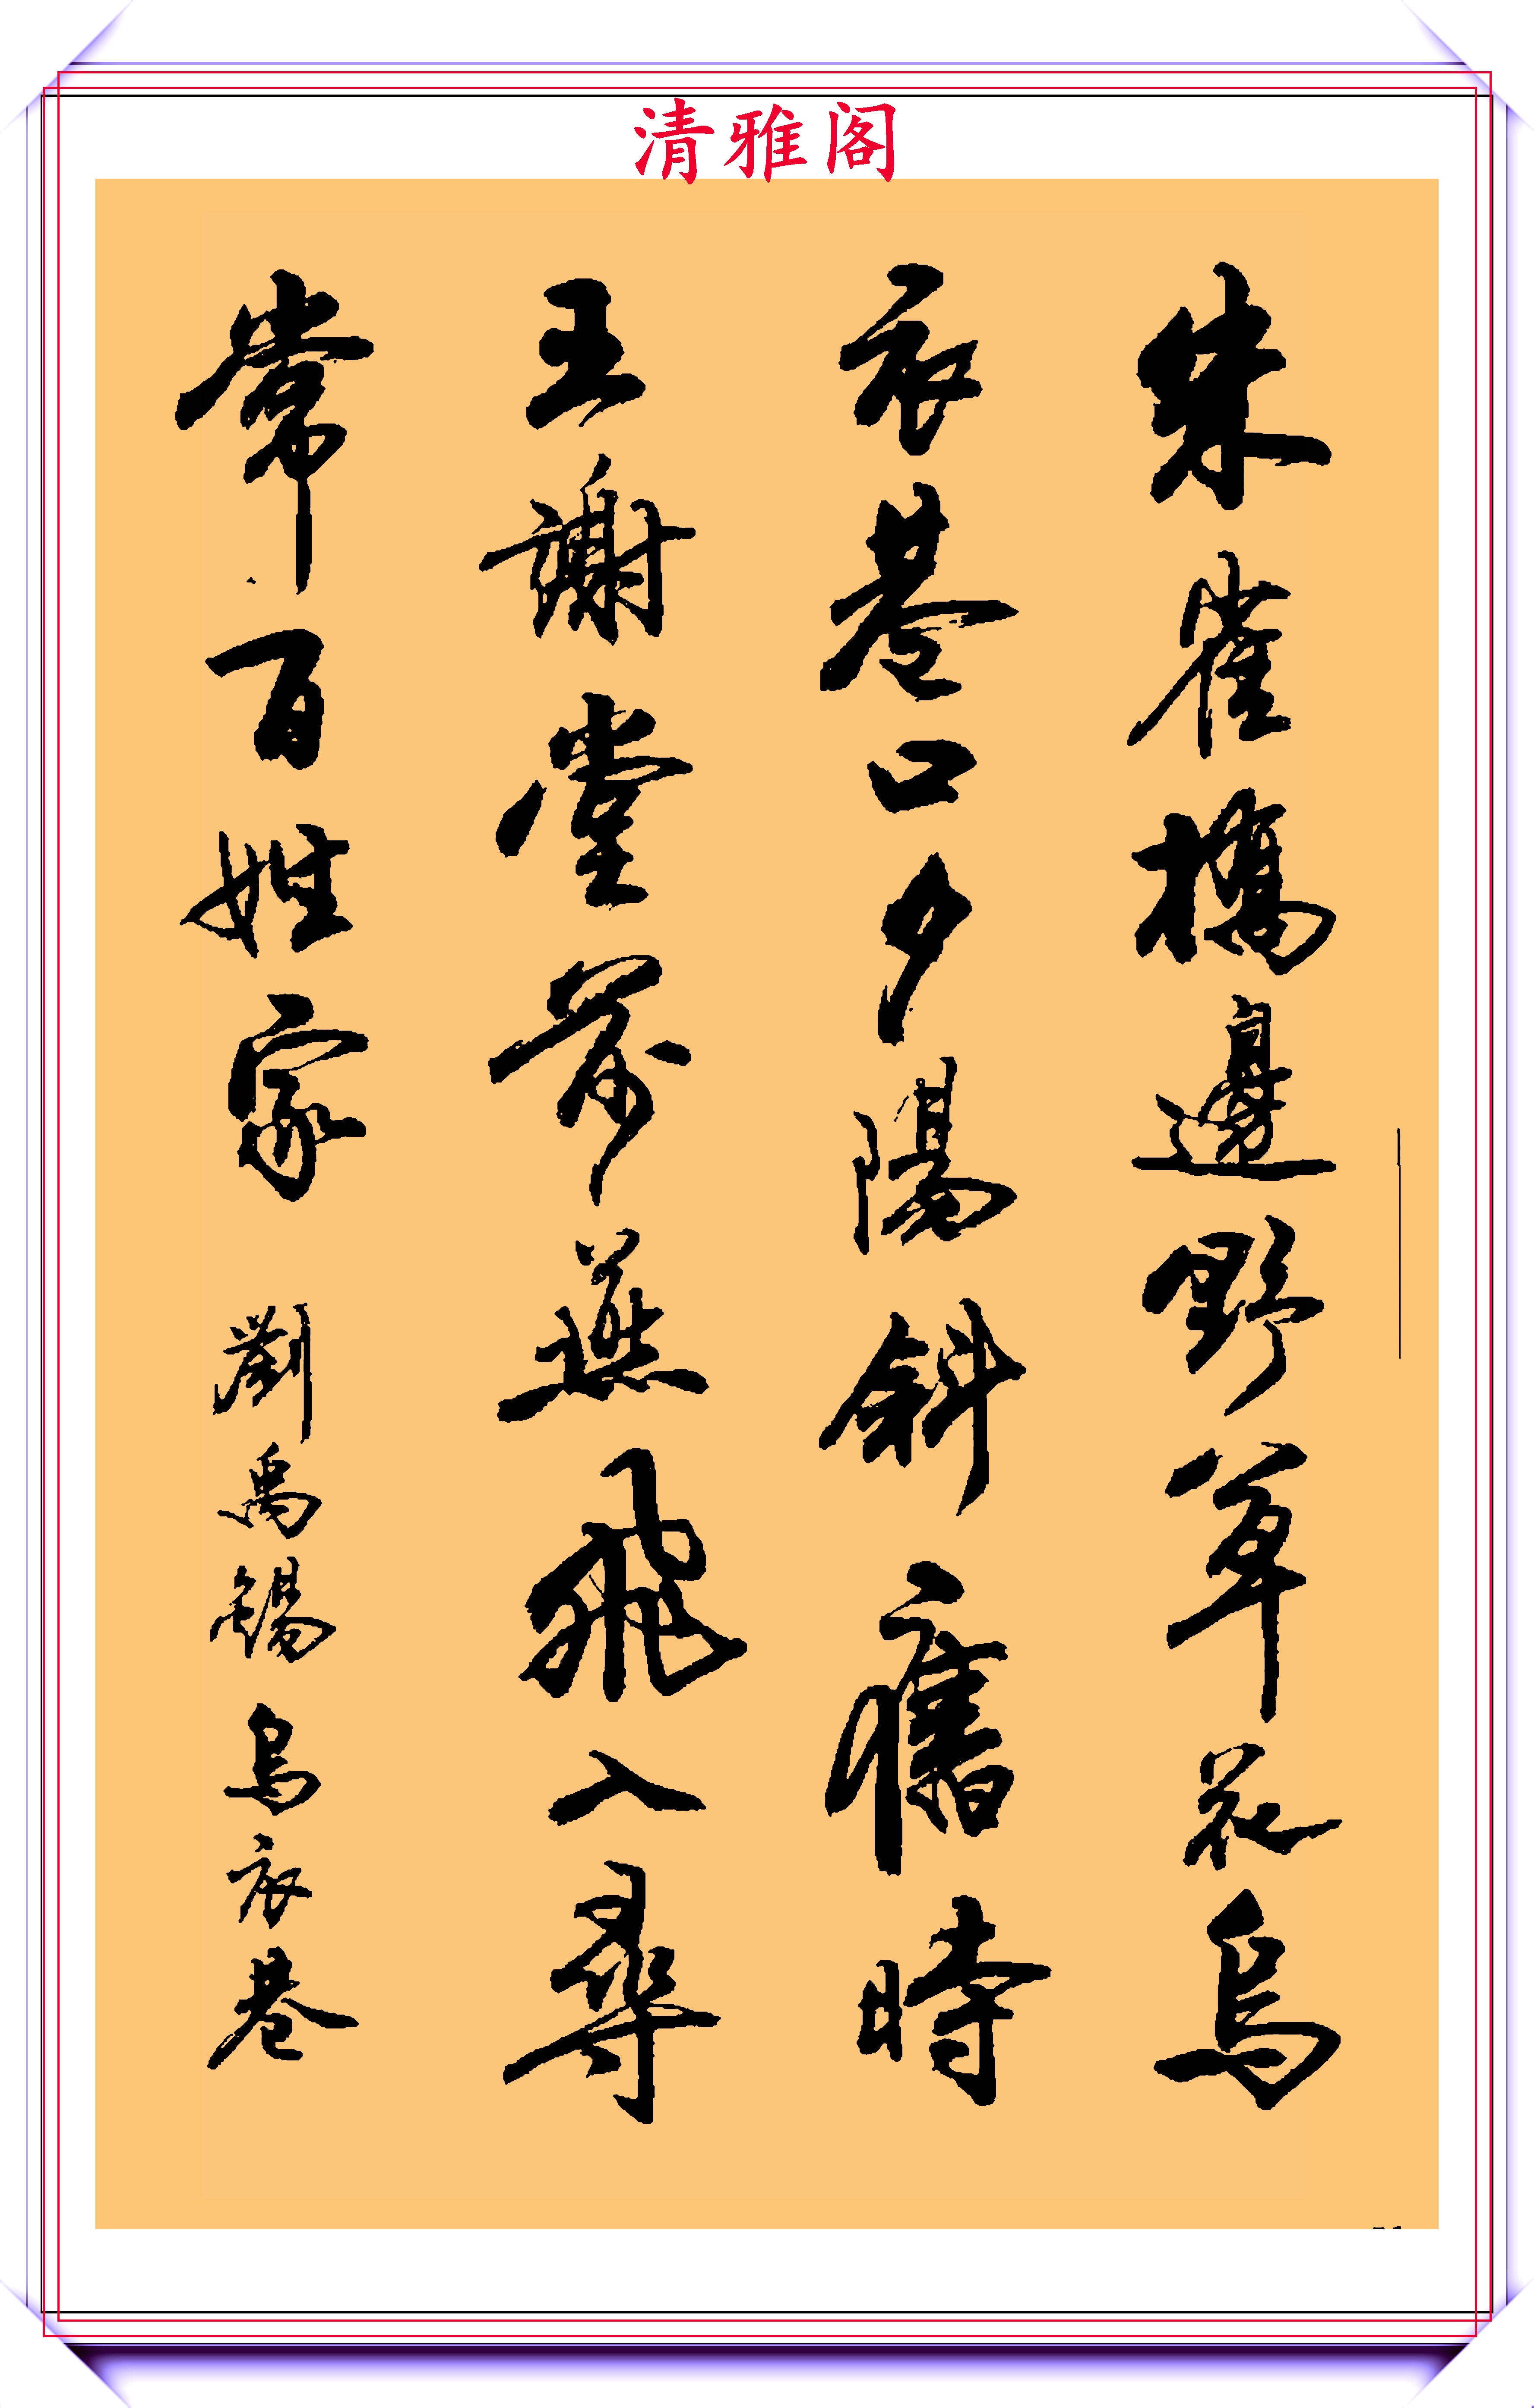 清雅阁
朱雀橋邊野草花烏
衣巷口夕陽斜舊時
王謝堂前燕飛入尋
常百姓家 劉禹錫烏衣巷